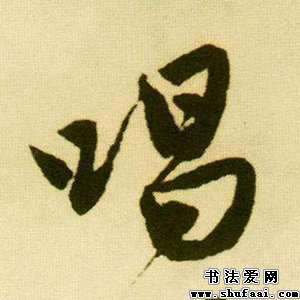 唱
书法爱网
www.shufaai.com